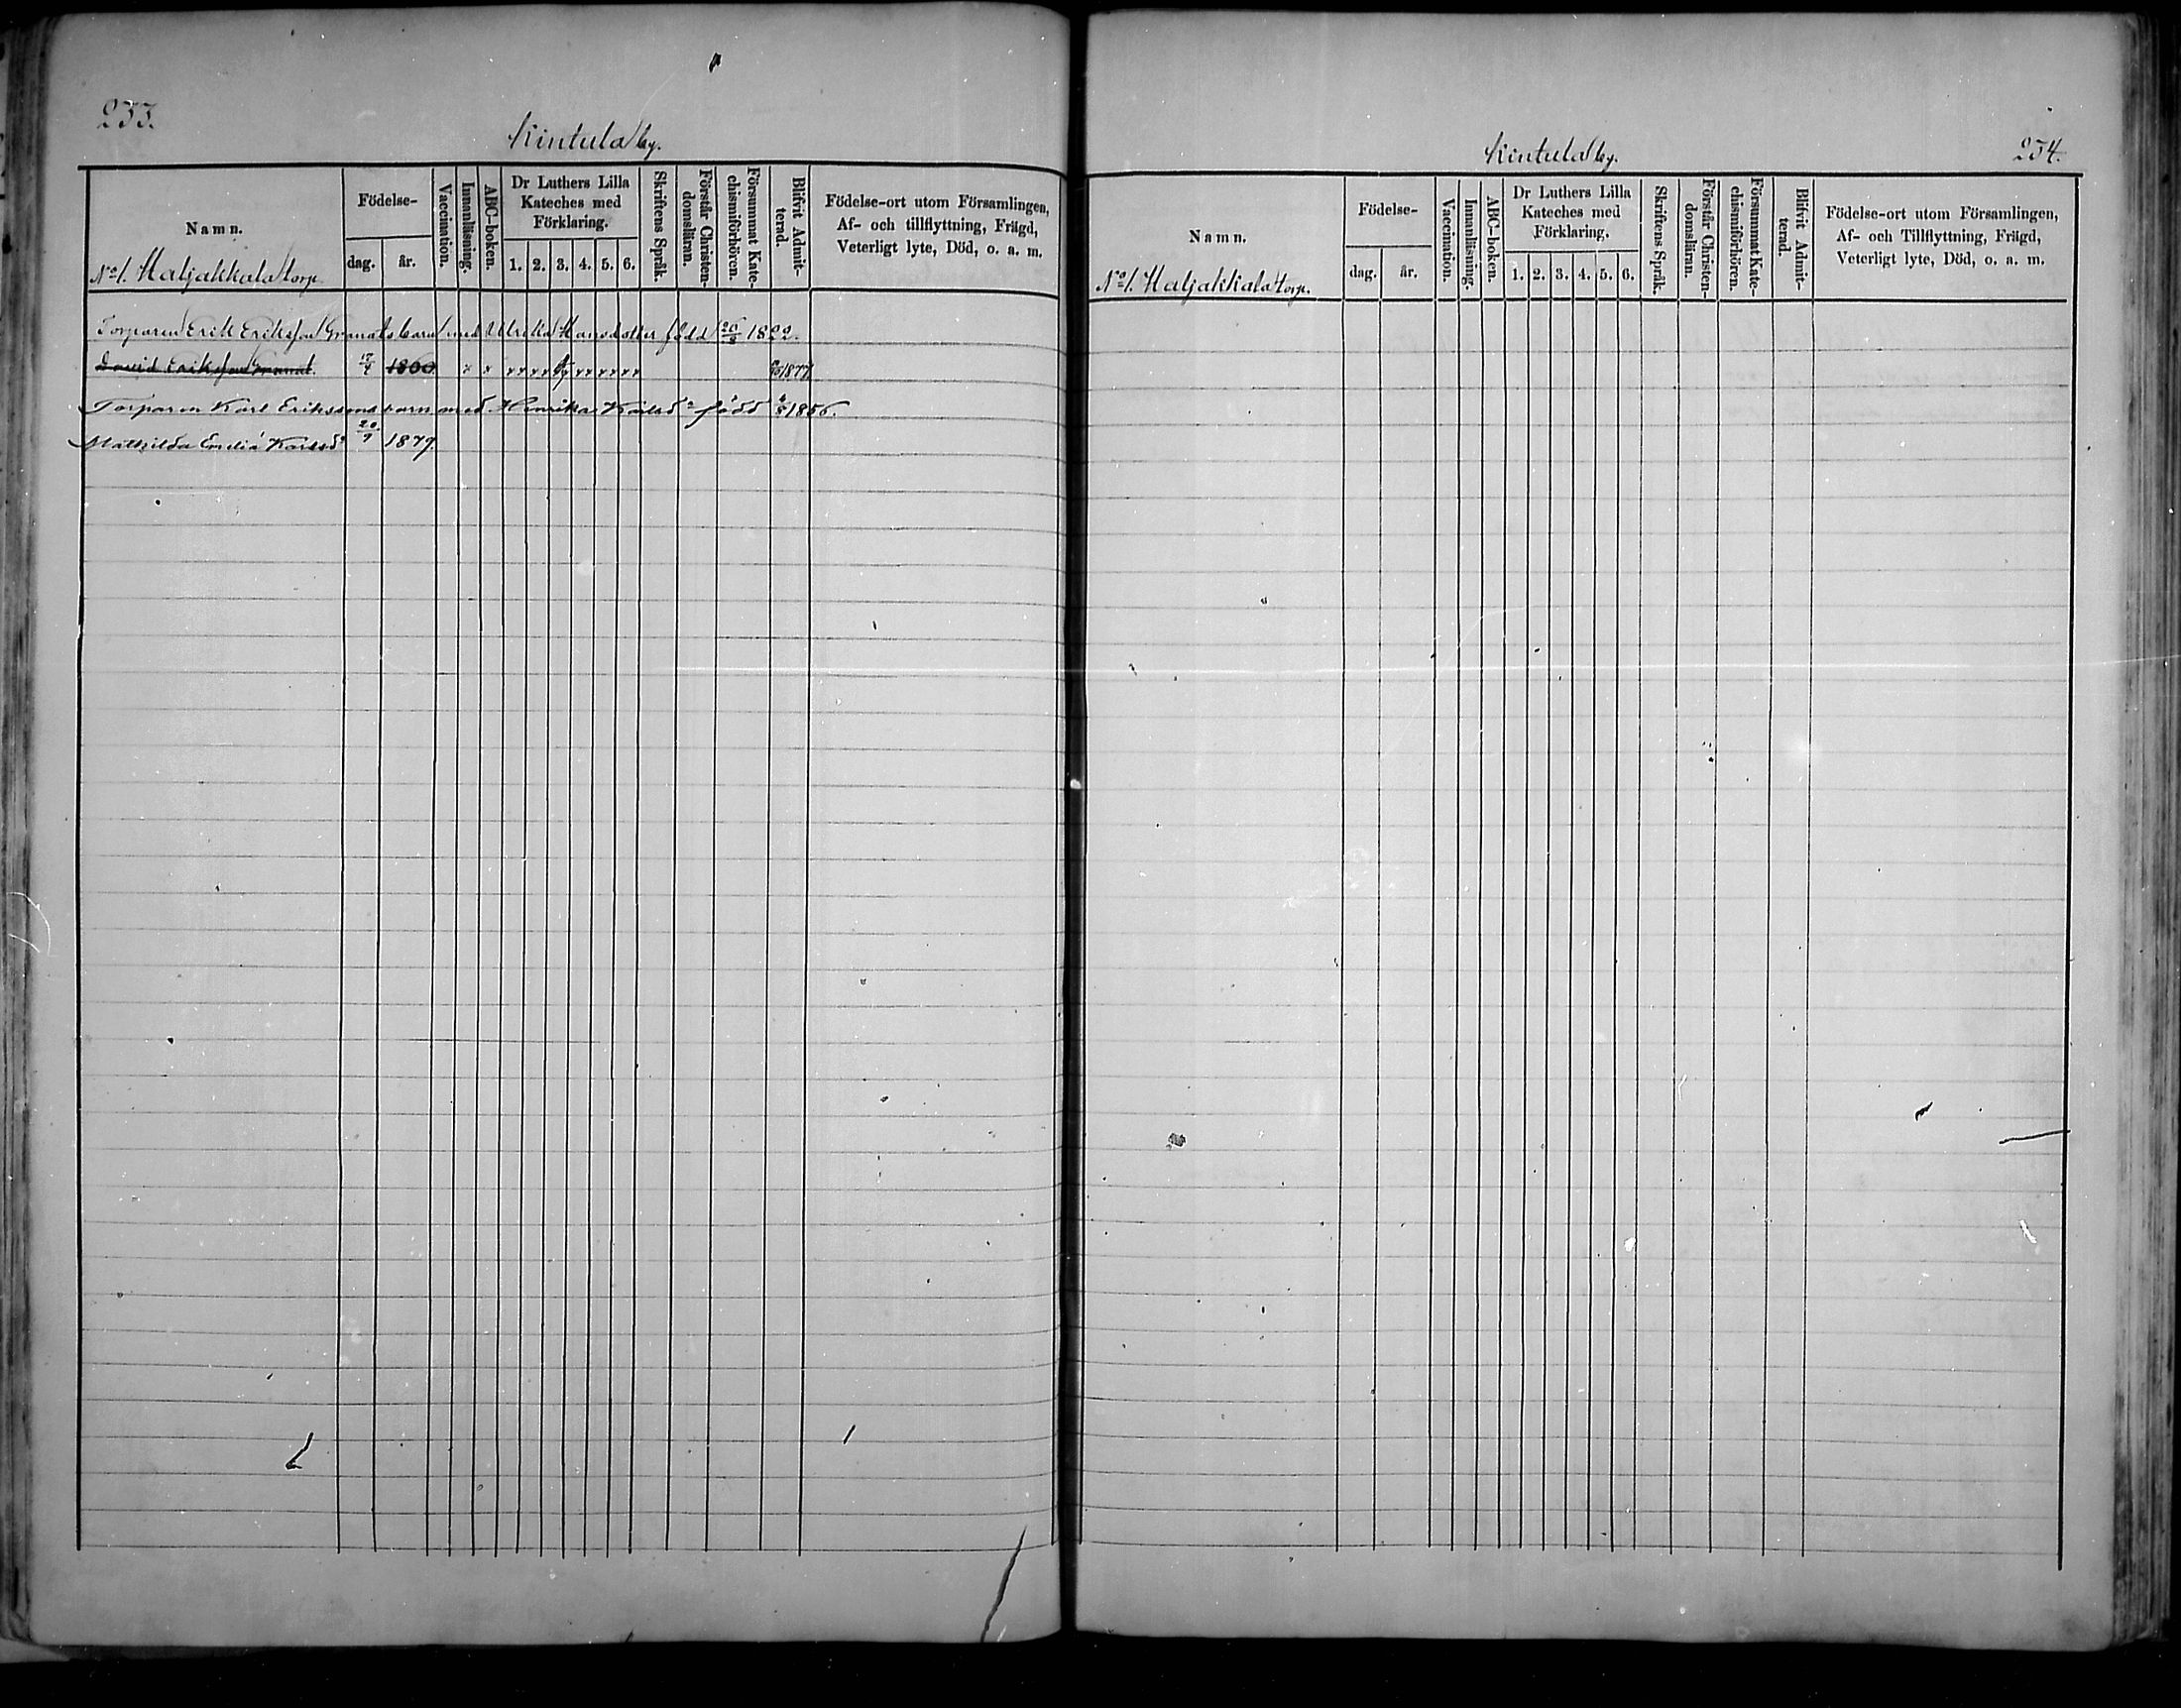 233.
Kintula by.
Namn.
Födelse-
dag.
år.
Vaccination.
Innanläsning.
ABC-boken.
Dr Luthers Lilla
Kateches med
Förklaring.
1. 2. 3. 4. 5. 6.
Skriftens Språk.
Förstår Christen-
domsläran.
Försummat Kate-
chismiförhören.
Blifvit Admit-
terad.
Födelse-ort utom Församlingen,
Af- och tillflyttning, Frägd,
Veterligt lyte, Död, o. a. m.
No 1. Haljakkala torp.
Torparen Erik Eriksson Granats barn med Ulrika Hansdotter född 20/3 1822.
David Eriksson Granat. 17/4 1860 x x 1877
Torparen Karl Erikssons barn med Henrika Karlsdr född 1856.
Mathilda Emilia Karlsdr 20/9 1879.
Kintula by.
234.
Namn.
Födelse-
dag.
år.
Vaccination.
Innanläsning.
ABC-boken.
Dr Luthers Lilla
Kateches med
Förklaring.
1. 2. 3. 4. 5. 6.
Skriftens Språk.
Förstår Christen-
domsläran.
Försummat Kate-
chismiförhören.
Blifvit Admit-
terad.
Födelse-ort utom Församlingen,
Af- och Tillflyttning, Frägd,
Veterligt lyte, Död, o. a. m.
No 1. Haljakkala torp.